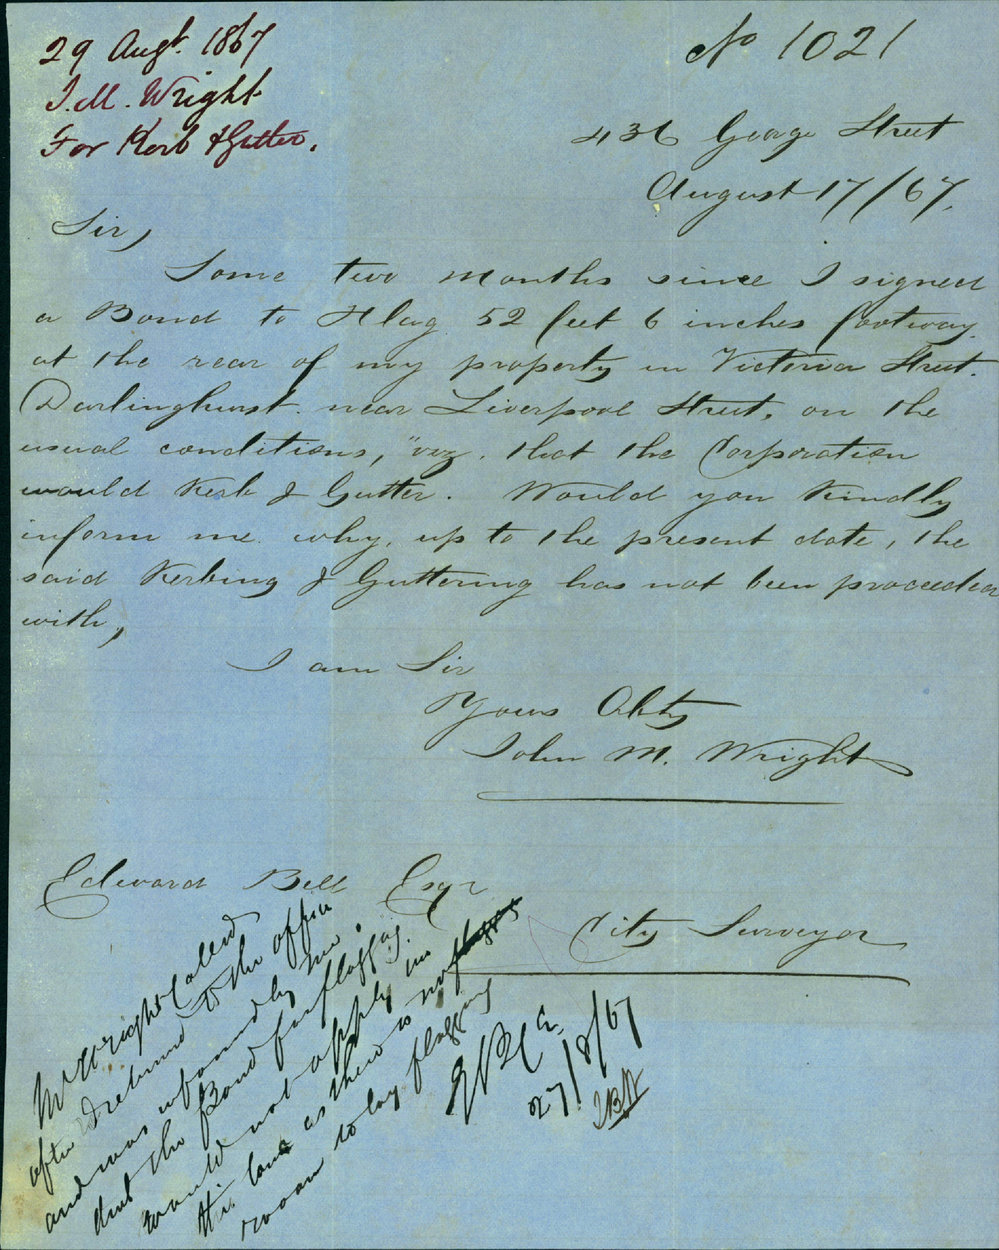 29 Augt. 1867
J. M. Wright
For Kerb & Gutter.
No 1021
436 George Street
August 17/67.
Sir,
Some two months since I signed
a Bond to Flag 52 feet 6 inches footway
at the rear of my property in Victoria Street.
Darlinghurst. near Liverpool Street, on the
usual conditions, "viz. that the Corporation
would Kerb & Gutter. Would you Kindly
inform me why, up to the present date, the
said Kerbing & Guttering has not been proceeded
with,
I am Sir
Yours Obtly
John M. Wright
Edward Bell Esqr
City Surveyor
Mr Wright Called
after I returned to the office
and was informed by me
that the Bond for flagging
would not apply in
this case as there is no flagging
room to lay flagging
27/8/67